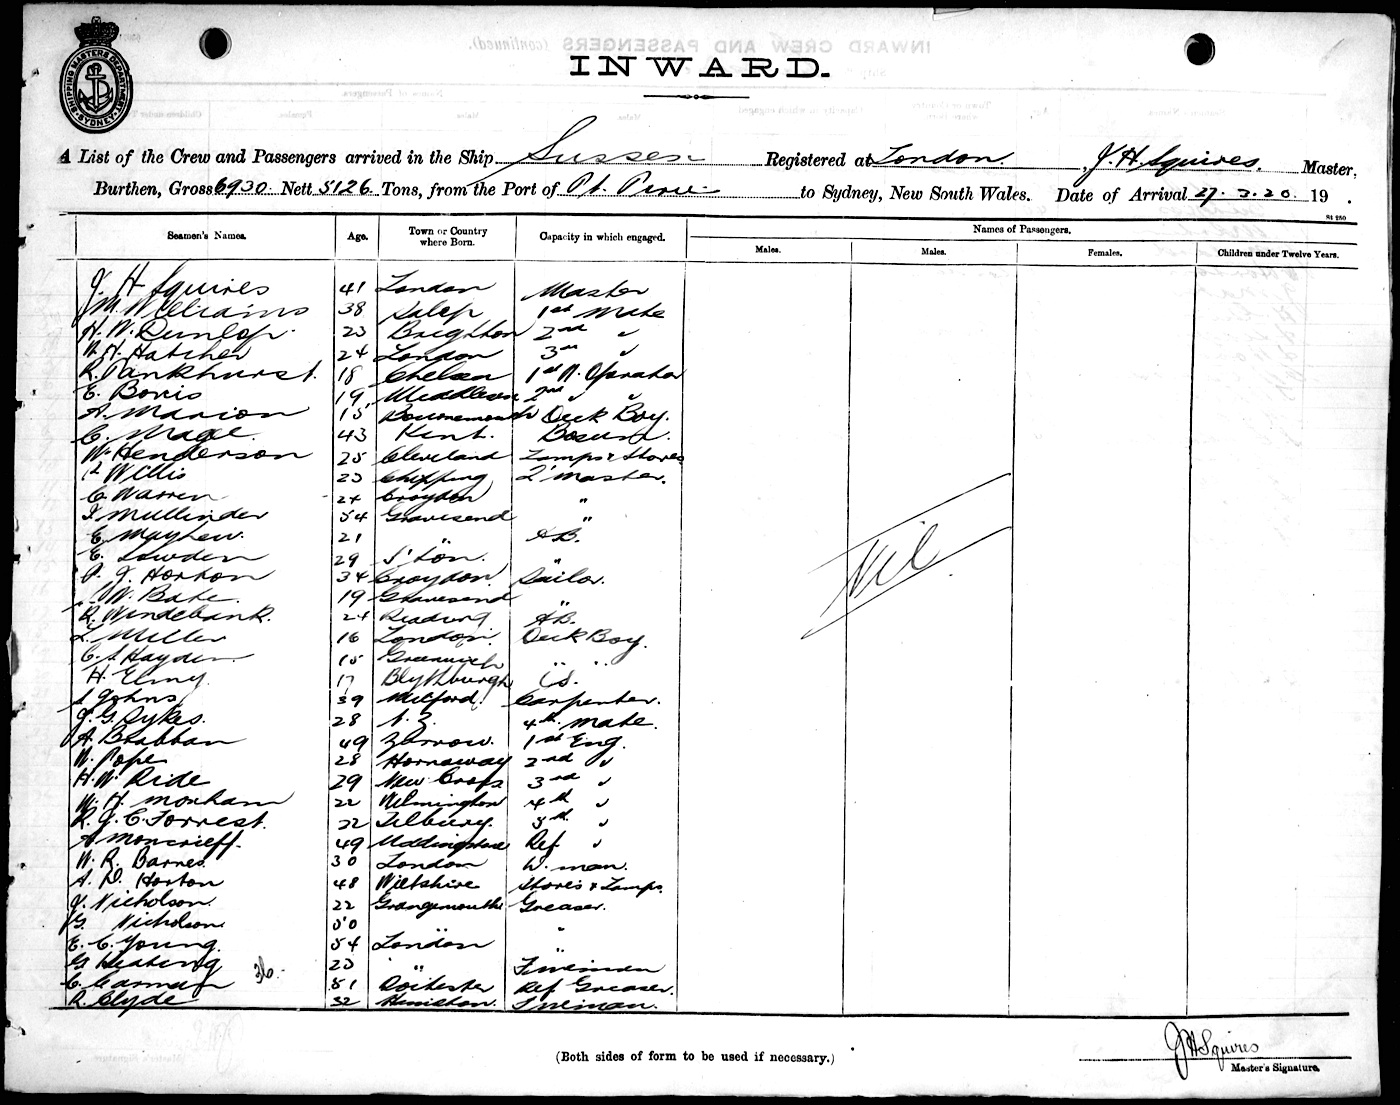 SHIPPING MASTERS DEPARTMENT SYDNEY
INWARD CREW AND PASSENGERS (continued).
INWARD.
A List of the Crew and Passengers arrived in the Ship Sussex Registered at London. J. H. Squires. Master,
Burthen, Gross 6930. Nett 5126 Tons, from the Port of Pt. Pirie to Sydney, New South Wales. Date of Arrival 27.3.20. 19 .
Seamen's Names. Age. Town or Country where Born. Capacity in which engaged. Names of Passengers.
Males. Males. Females. Children under Twelve Years.
J. H Squires 41 London Master
M. Williams 38 Salop 1st Mate
H. W. Dunlop. 23 Brighton 2nd "
W. H. Hatcher 24 London 3rd "
R. Pankhurst. 18 Chelsea 1st W. Operator
E. Bovis 19 Middlesex 2nd " "
A. Marion 15 Bournemouth Deck Boy.
C. Mage. 43 Kent. Bosun.
W. Henderson 25 Cleveland Lamps & Stores
Willis 23 Chipping Q'master.
C. Warren 24 Croydon "
Mullinder 54 Gravesend "
E. Mayhew. 21 " AB.
E. Lowden 29 S'ton.
Horton 34 Croydon Sailor.
W. Bate. 19 Gravesend "
R. Windebank. 24 Reading AB.
L. Miller 16 London Deck Boy.
C. Hayden. 15 Greenwich " "
H. Elmy. 17 Blythburgh O.S.
Johns 39 Milford. Carpenter.
J. G. Sykes. 28 N. Z. 4th mate.
A. Brabban 49 Jarrow. 1st Eng.
W. Pope 28 Hornaway 2nd "
H. W. Ride 29 New Cross 3rd "
W. H. Moxham 22 Wilmington 4th "
R. J. C. Forrest. 22 Tilbury. 5th. "
A. Moncrieff. 49 Uddingston Ref "
W. R. Barnes. 30 London W. man.
A. D. Horton 48 Wiltshire Stores & Lamps.
J. Nicholson. 22 Grangemouth Greaser.
G. Nicholson 50 " "
E. C. Young. 54 London "
G Keating 36. 23 " Fireman
C. Carman 51 Ref Greaser.
R. Clyde 32 Fireman.
Nil
(Both sides of form to be used if necessary.)
J H Squires
Master's Signature.